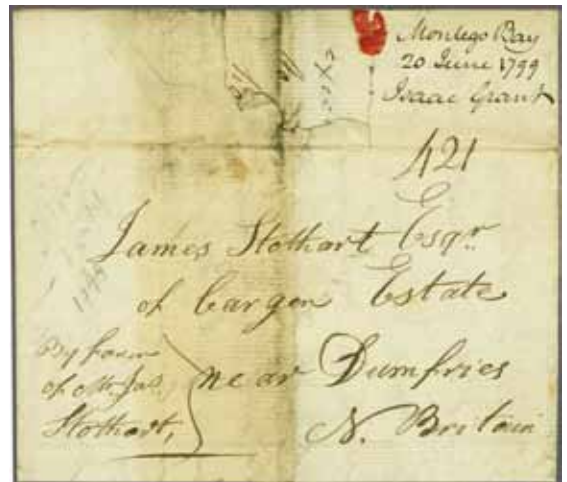 Montego Bay
20 June 1799
Isaac Grant
421
James Stothart Esqr.
of Cargen Estate
near Dumfries
N. Britain
By favor
of Mr. Jas.
Stothart,